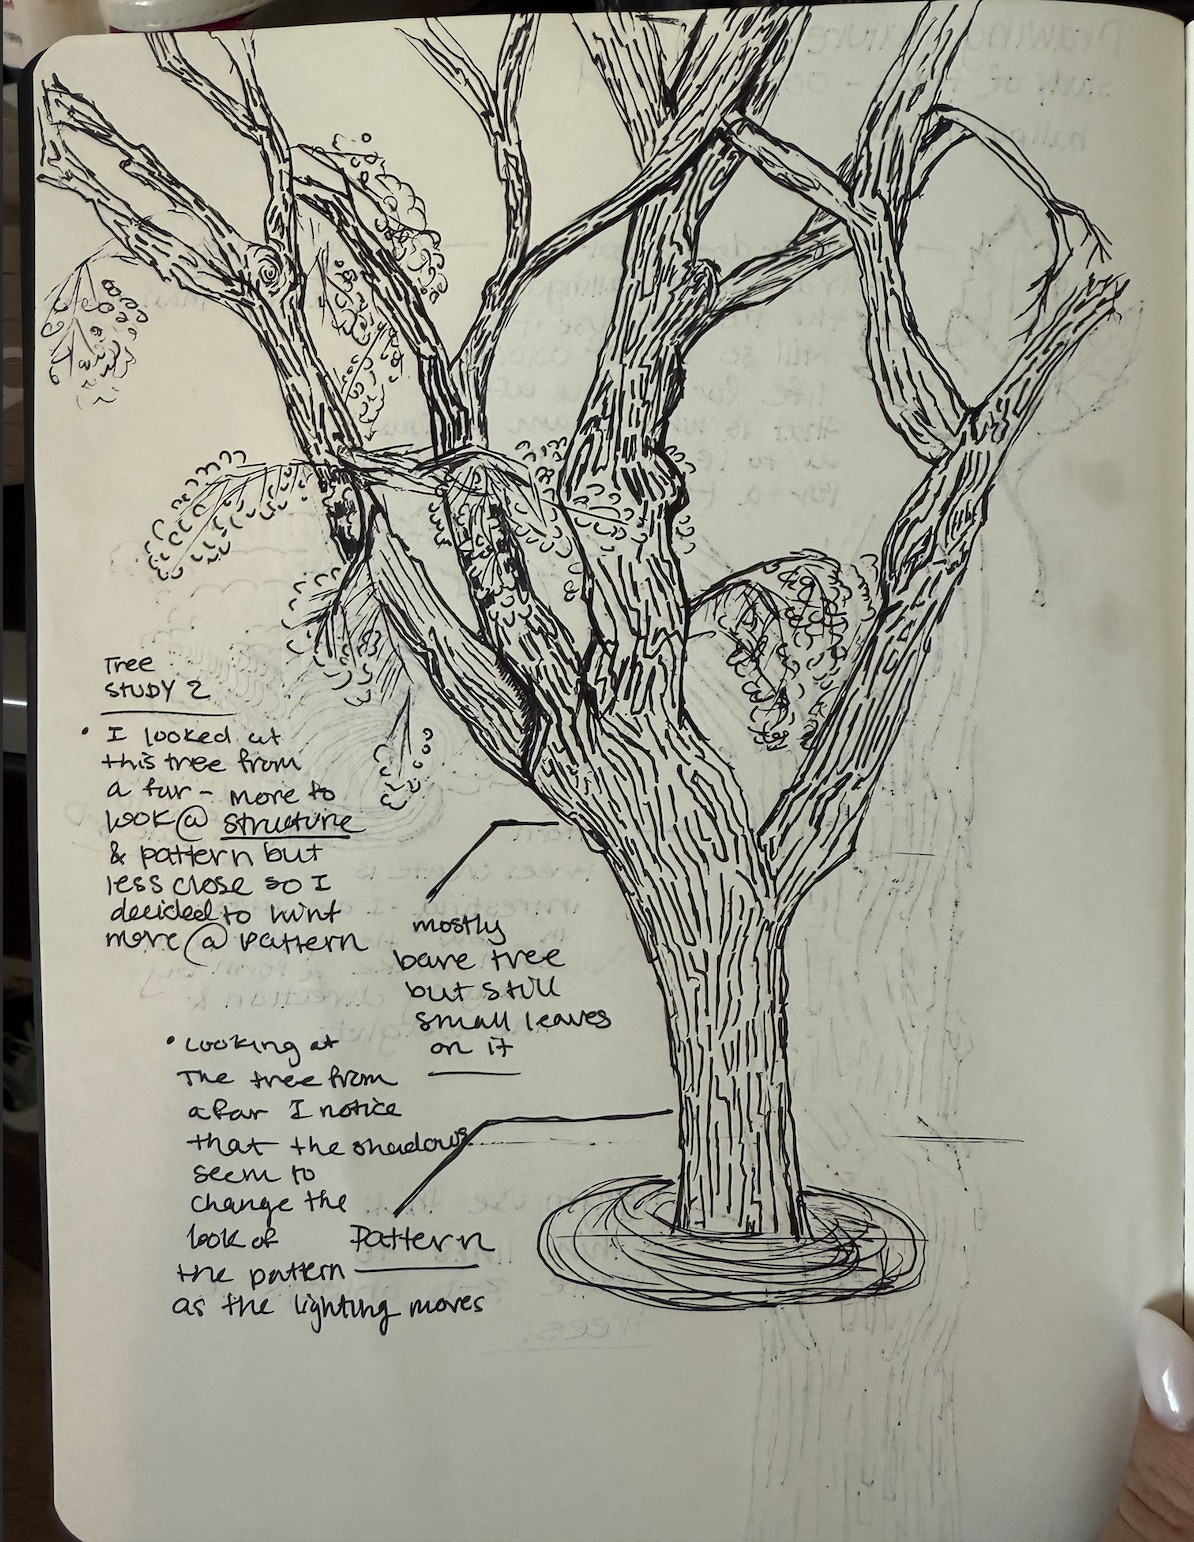 Tree
STUDY 2
• I looked at
this tree from
a far - more to
look @ structure
& pattern but
less close so I
decided to hint
more @ pattern
mostly
bare tree
but still
small leaves
on it
• Looking at
The tree from
afar I notice
that the shadows
seem to
change the
look of
the pattern
as the lighting moves
Pattern